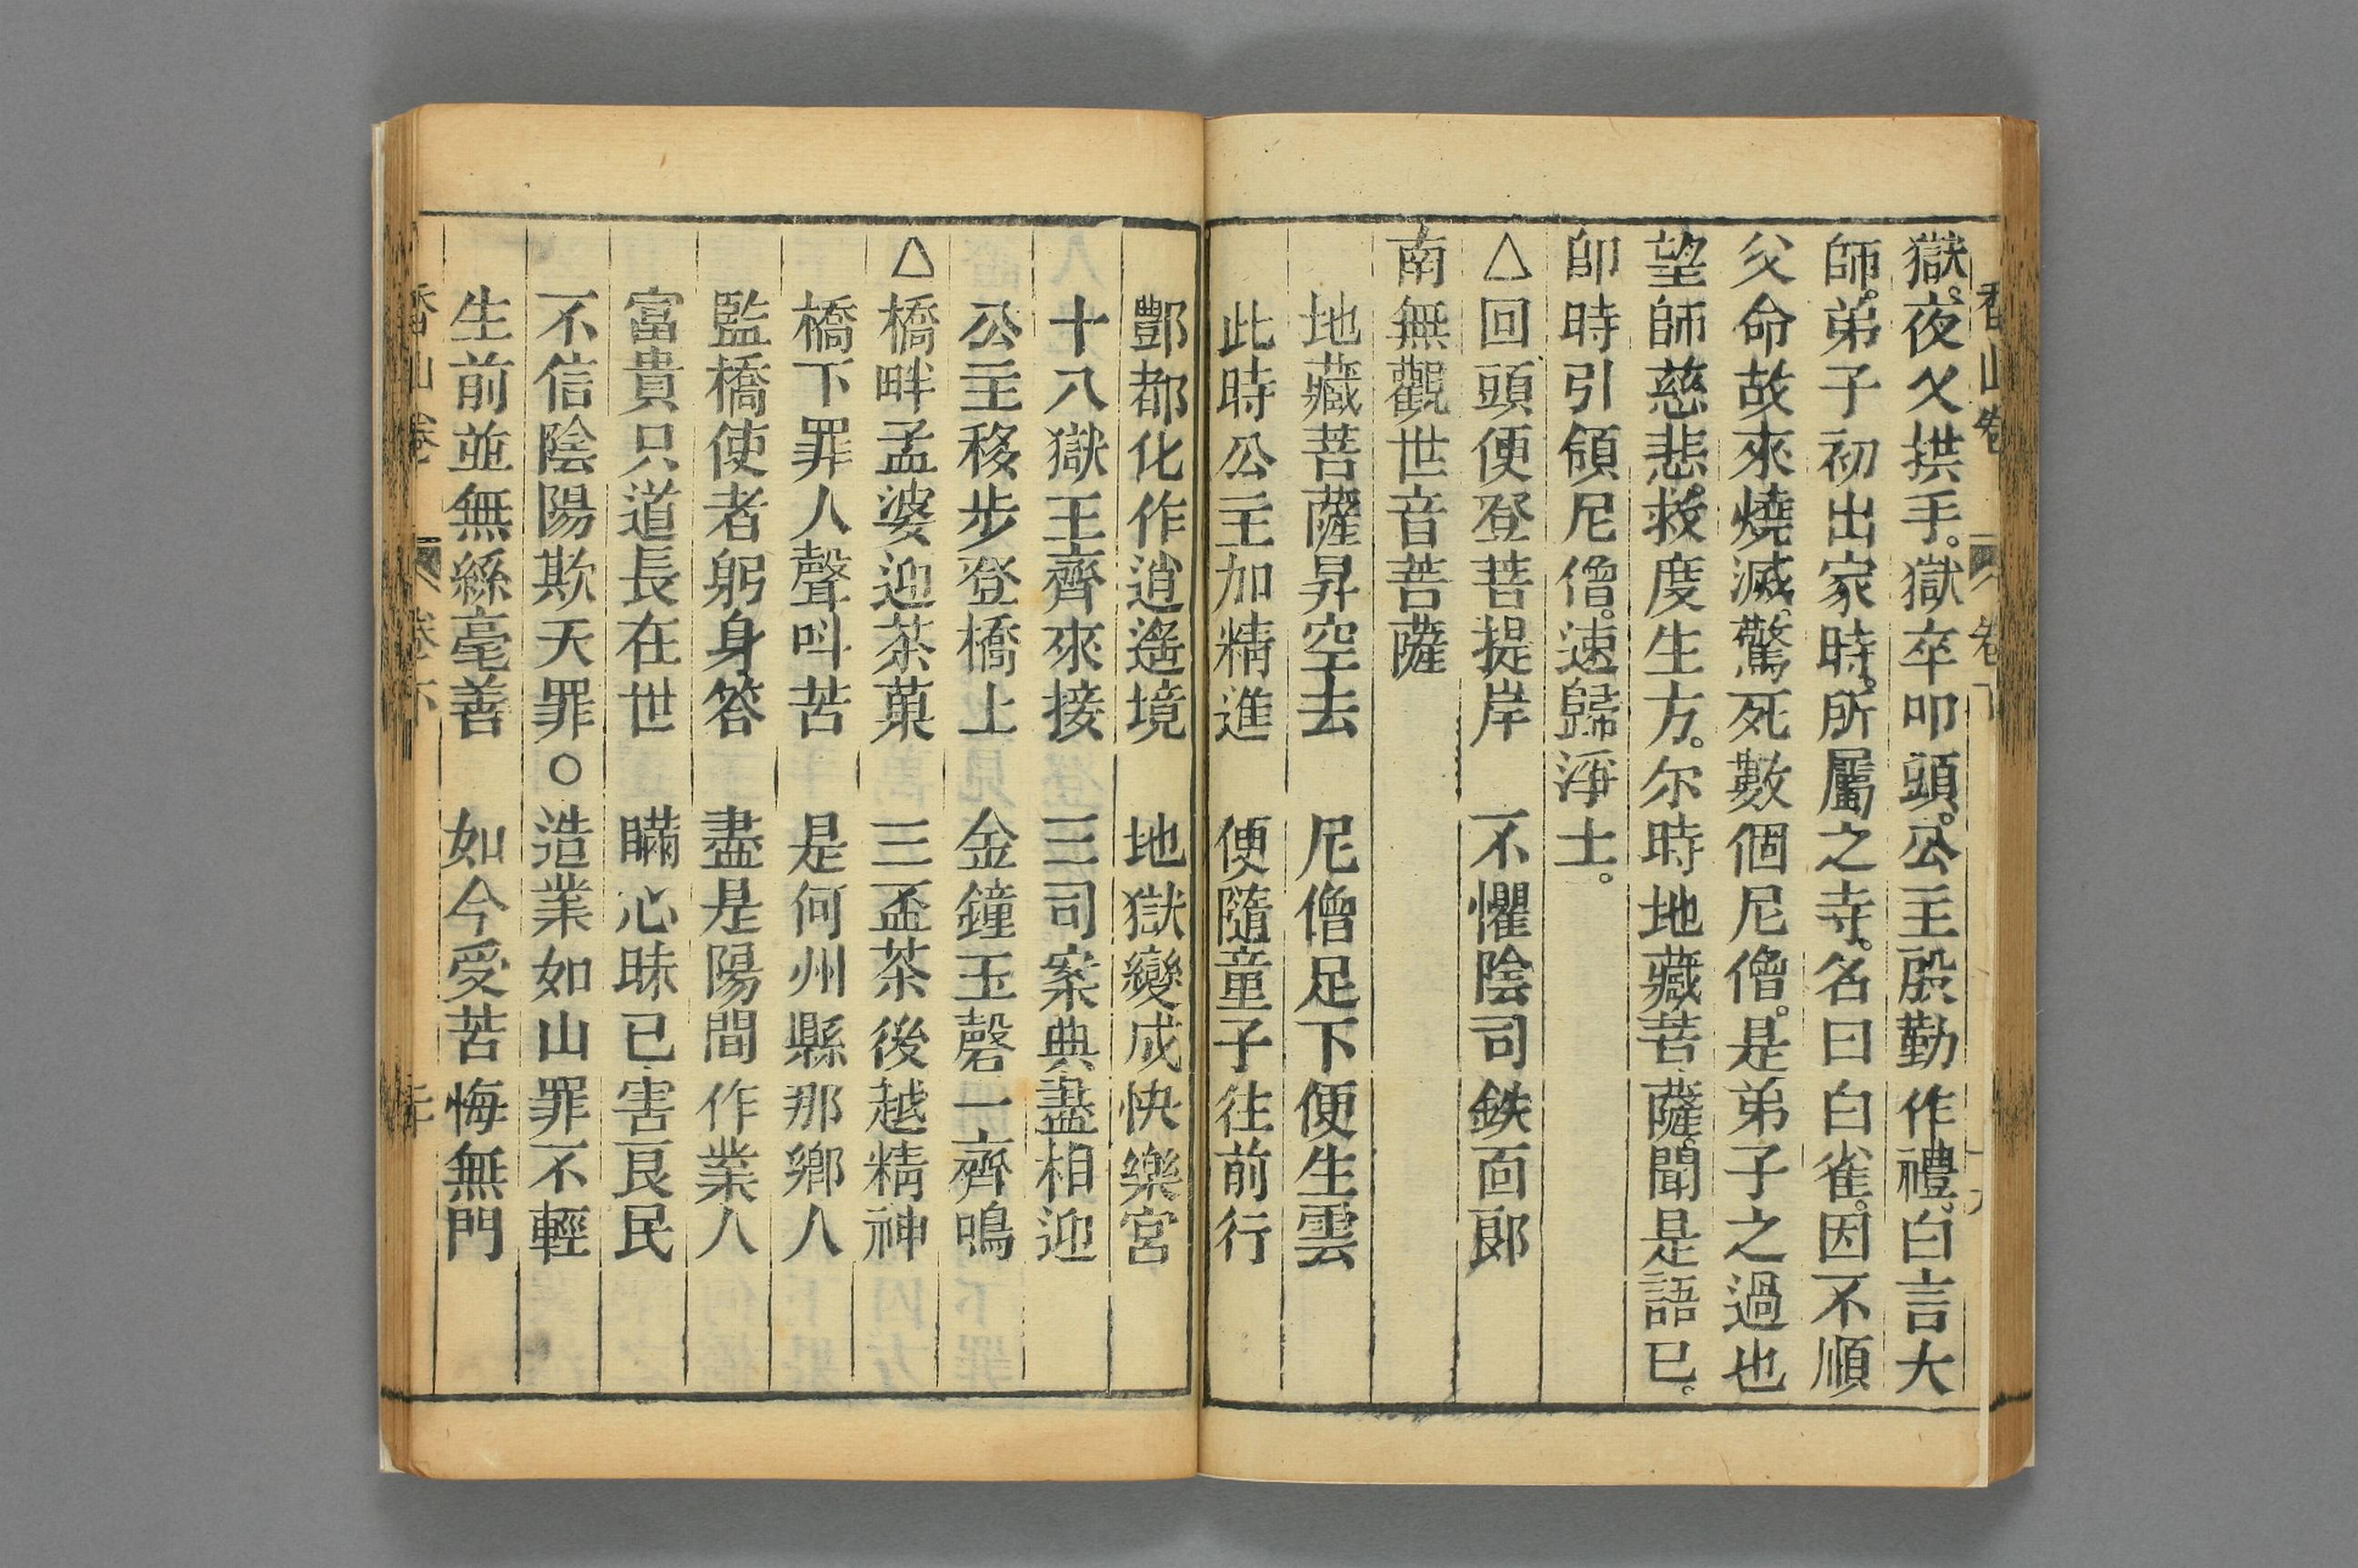 獄。夜父拱手。獄卒叩頭。公主殷勤作禮。白言大
師。弟子初出家時。所屬之寺。名曰白雀。因不順
父命故來燒滅。驚死數個尼僧。是弟子之過也
望師慈悲。救度生方。尔時地藏菩薩。聞是語已。
即時引領尼僧。速歸淨土。
△回頭便登菩提岸　不懼陰司鉄面郎
南無觀世音菩薩
地藏菩薩昇空去　尼僧足下便生雲
此時公主加精進　便隨童子往前行
酆都化作逍遙境　地獄變成快樂宮
十八獄王齊來接　三司案典盡相迎
公主移步登橋上　金鐘玉磬一齊鳴
△橋畔孟婆迎茶菓　三盃茶後越精神
橋下罪人聲叫苦　是何州縣那鄉人
監橋使者躬身答　盡是陽間作業人
富貴只道長在世　瞞心昧已害良民
不信陰陽欺天罪○造業如山罪不輕
生前並無絲毫善　如今受苦悔無門
香山卷　卷下